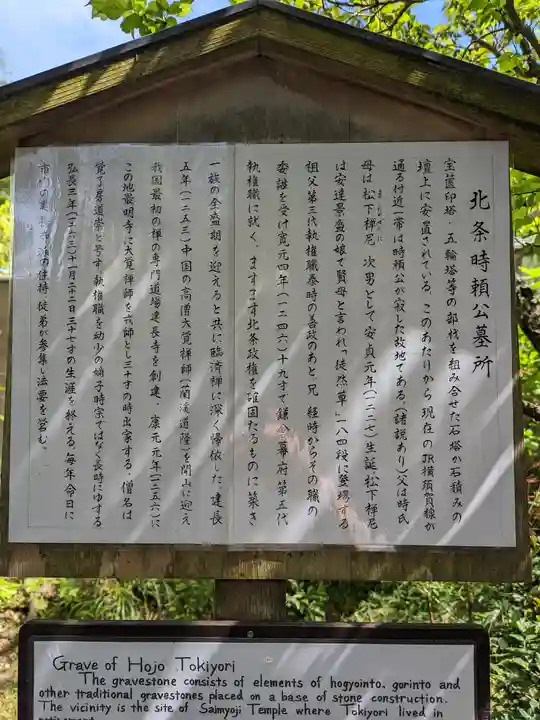 北条時頼公墓所
宝篋印塔・五輪塔等の部材を組み合せた石塔が石積みの
壇上に安置されている。このあたりから現在のJR横須賀線が
通る付近一帯は時頼公が寂した故地である。(諸説あり)父は時氏
母は松下禅尼 次男として安貞元年(一二二七)生誕 松下禅尼
は安達景盛の娘で賢母と言われ「徒然草」一八四段に登場する
祖父第三代執権職泰時の善政のあと、兄 経時からその職の
委譲を受け寛元四年(一二四六)十九才で鎌倉幕府第五代
執権職に就く。ますます北条政権を確固たるものに築き
一族の全盛期を迎えると共に臨済禅に深く帰依した。建長
五年(一二五三)中国の高僧大覚禅師(蘭渓道隆)を開山に迎え
我國最初の禅の専門道場建長寺を創建。康元元年(一二五六)に
この地最明寺に大覚禅師を戒師とし三十才の時出家する。僧名は
覚了房道崇と号す。執権職を幼少の嫡子時宗ではなく長時にゆずる
弘長三年(一二六三)十一月二十二日三十七才の生涯を終える。毎年命日に
の住持 徒弟が参集し法要を営む。
Grave of Hojo Tokiyori
The gravestone consists of elements of hogyointo, gorinto and
other traditional gravestones placed on a base of stone construction.
The vicinity is the site of Saimyoji Temple where Tokiyori lived in